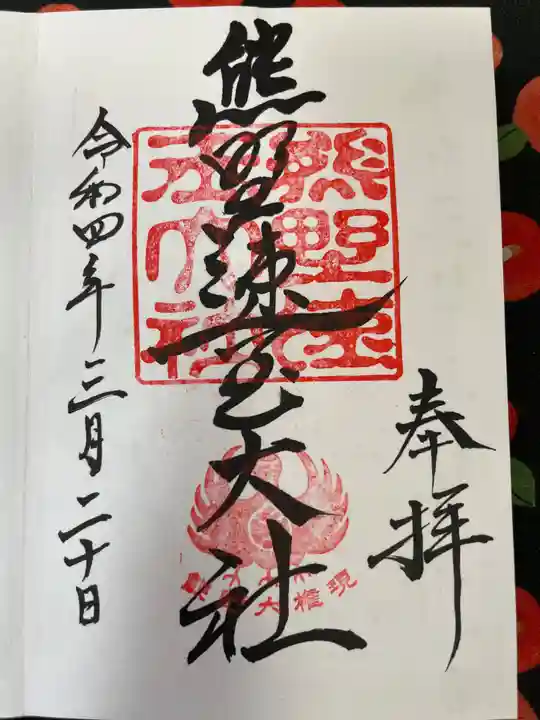 奉拝
熊野速玉大社
令和四年三月二十日
熊野速玉大社
大権現